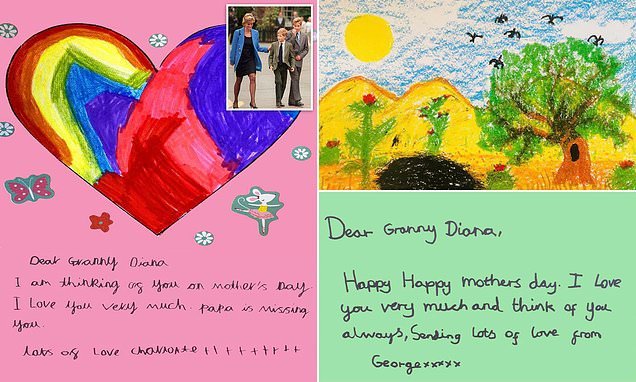 Dear Granny Diana
I am thinking of you on mother's Day.
I Love you very much. Papa is missing
you.
lots of Love charlotte + + + + + + + +
Dear Granny Diana,
Happy Happy mothers day. I Love
you very much and think of you
always, Sending lots of love from
Georgexxxxx